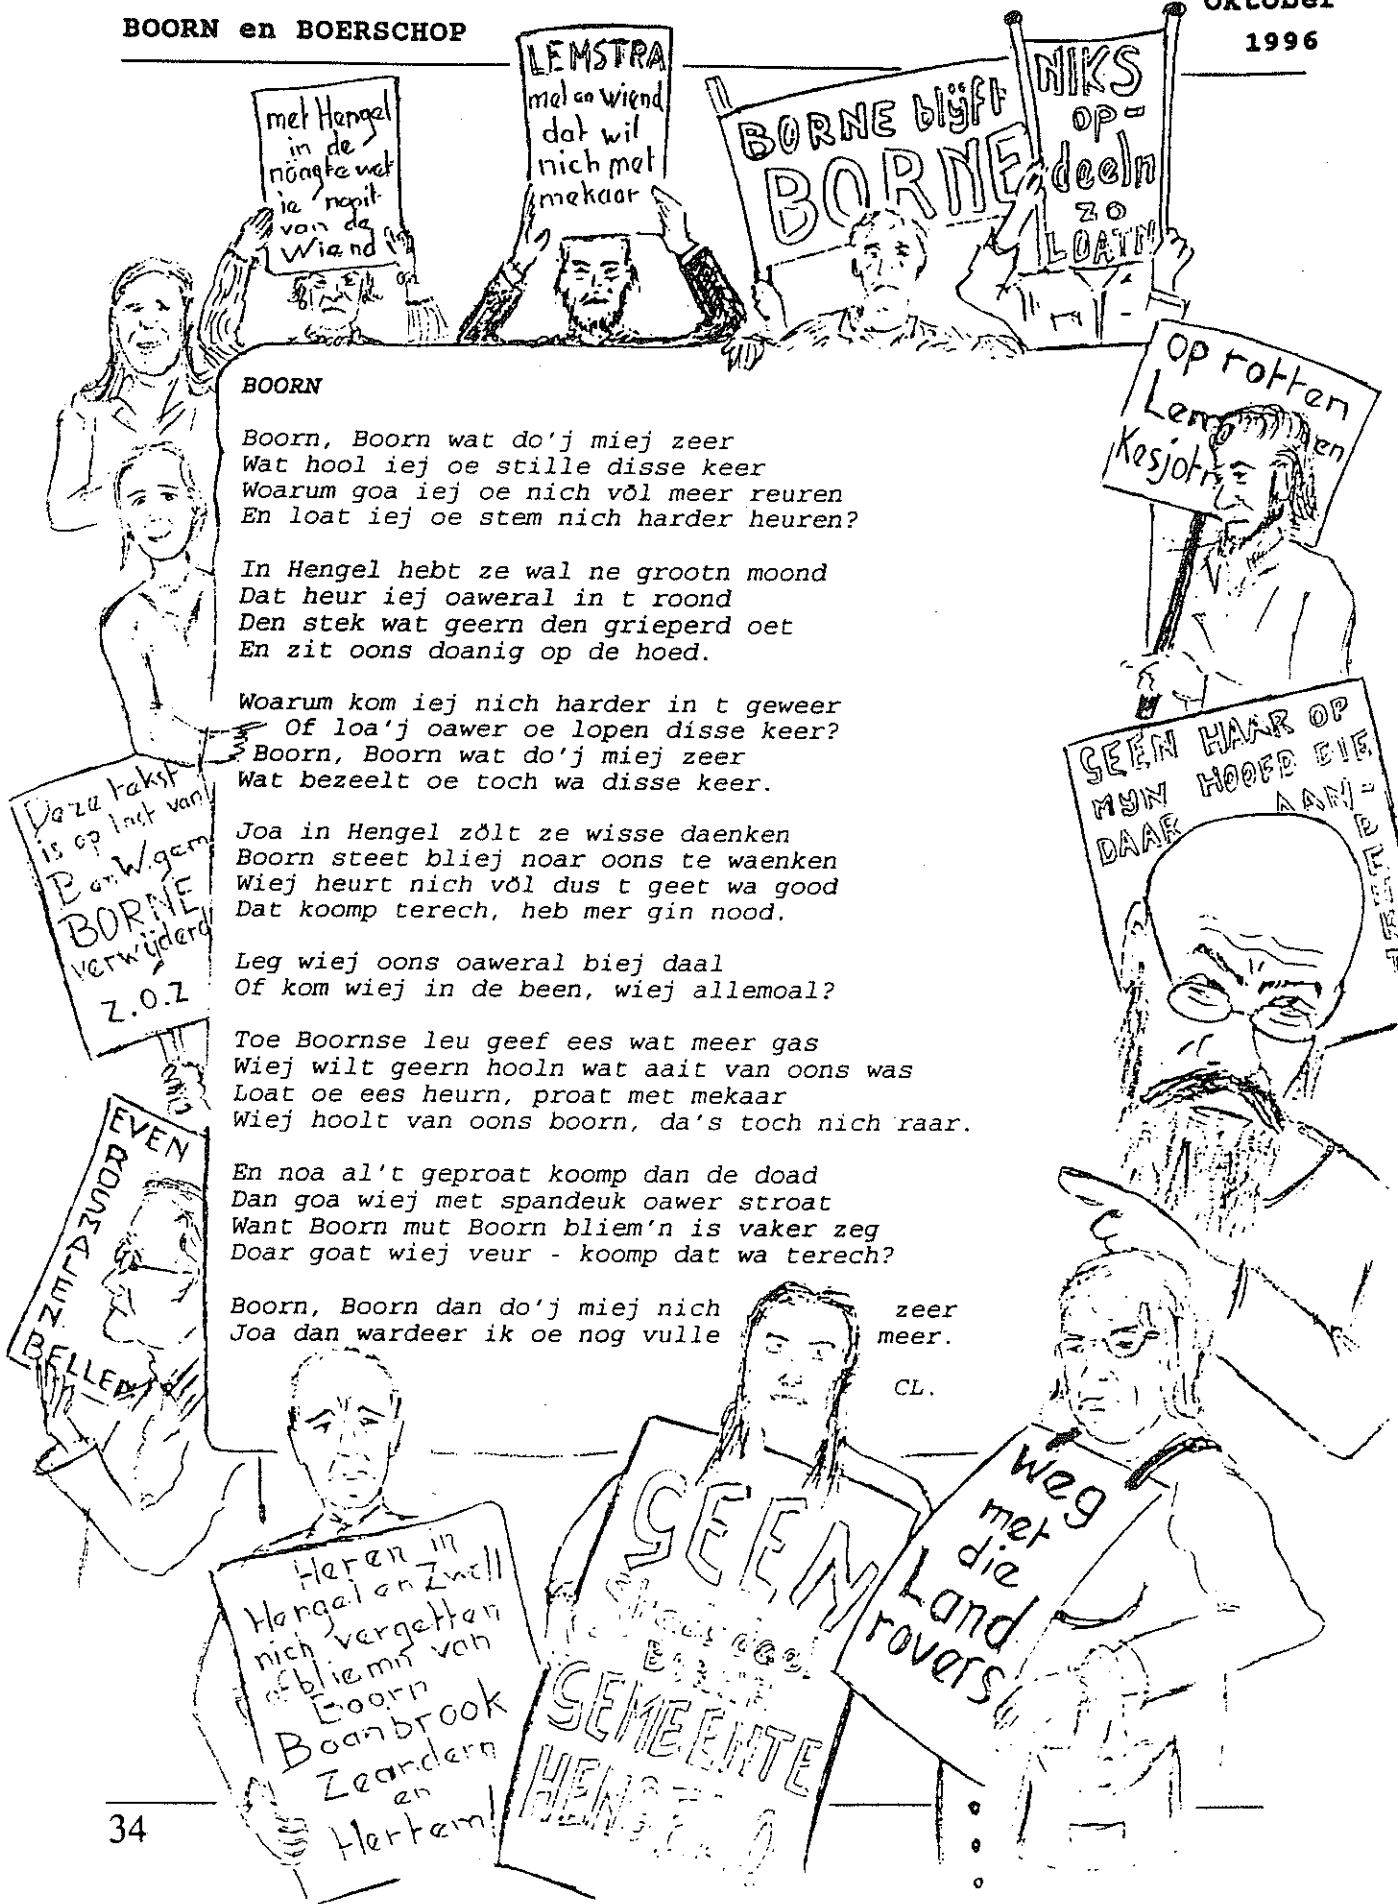 BOORN en BOERSCHOP
Oktober
1996
met Hengel
in de
nöagte wet
ie nooit
van de
Wiend
LEMSTRA
mel en Wiend
dat wil
nich met
mekaar
BORNE blijft
BORNE
NIKS
op-
deeln
zo
LOATN
op rotten
Lem en
Kasjotn
GEEN HAAR OP
MYN HOOFD DIE
DAAR AAN
Deze tekst
is op last van
B en W. gem
BORNE
verwijderd
Z.O.Z
EVEN
ROSMALEN
BELLEN
BOORN
Boorn, Boorn wat do'j miej zeer
Wat hool iej oe stille disse keer
Woarum goa iej oe nich völ meer reuren
En loat iej oe stem nich harder heuren?
In Hengel hebt ze wal ne grootn moond
Dat heur iej oaweral in t roond
Den stek wat geern den grieperd oet
En zit oons doanig op de hoed.
Woarum kom iej nich harder in t geweer
Of loa'j oawer oe lopen disse keer?
Boorn, Boorn wat do'j miej zeer
Wat bezeelt oe toch wa disse keer.
Joa in Hengel zölt ze wisse daenken
Boorn steet bliej noar oons te waenken
Wiej heurt nich völ dus t geet wa good
Dat koomp terech, heb mer gin nood.
Leg wiej oons oaweral biej daal
Of kom wiej in de been, wiej allemoal?
Toe Boornse leu geef ees wat meer gas
Wiej wilt geern hooln wat aait van oons was
Loat oe ees heurn, proat met mekaar
Wiej hoolt van oons boorn, da's toch nich raar.
En noa al't geproat koomp dan de doad
Dan goa wiej met spandeuk oawer stroat
Want Boorn mut Boorn bliem'n is vaker zeg
Doar goat wiej veur - koomp dat wa terech?
Boorn, Boorn dan do'j miej nich zeer
Joa dan wardeer ik oe nog vulle meer.
CL.
Heren in
Hengel en Zwoll
nich vergetten
ofbliemn van
Boorn
Boanbrook
Zeandern
en
Hertem!
GEEN
GEMEENTE
Weg
met
die
Land
rovers
34